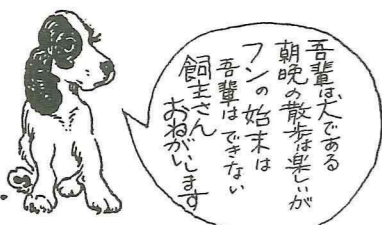 吾輩は犬である
朝晩の散歩は楽しいが
フンの始末は
吾輩はできない
飼主さん
おねがいします